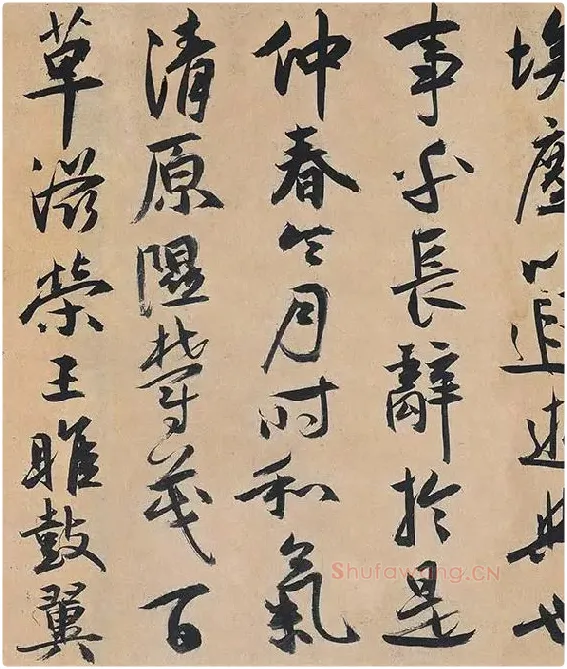 埃塵以遐逝與世
事乎長辭於是
仲春令月時和氣
清原隰鬱茂百
草滋榮王雎鼓翼
Shufawang.CN